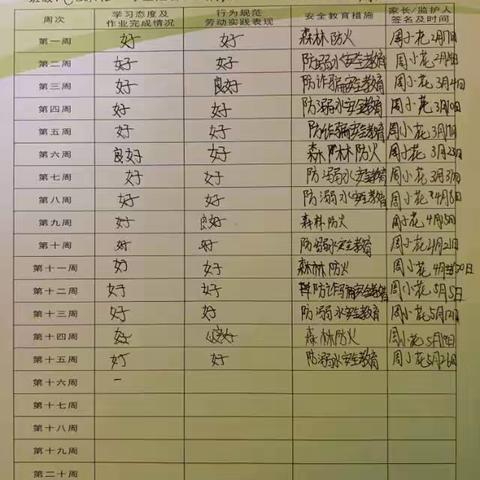 周次 学习态度及作业完成情况 行为规范劳动实践表现 安全教育措施 家长/监护人签名及时间
第一周 好 好 森林防火 周小花 2月17日
第二周 好 好 防溺水安全教育 周小花 2月
第三周 好 良好 防诈骗安全教育 周小花 3月4日
第四周 好 好 防溺水安全教育 周小花 3月10日
第五周 好 好 防诈骗安全教育 周小花 3月
第六周 良好 好 森林防火 周小花 3月23日
第七周 好 好 防溺水安全教育 周小花 3月31日
第八周 好 好 防溺水安全教育 周小花 4月8日
第九周 好 良好 森林防火 周小花 4月
第十周 好 好 防溺水安全教育 周小花 4月21日
第十一周 好 好 森林防火 周小花 4月30日
第十二周 好 好 防诈骗安全教育 周小花 5月5日
第十三周 好 好 防溺水安全教育 周小花 5月12日
第十四周 好 良好 森林防火 周小花 5月
第十五周 好 好 防溺水安全教育 周小花 5月26日
第十六周
第十七周
第十八周
第十九周
第二十周